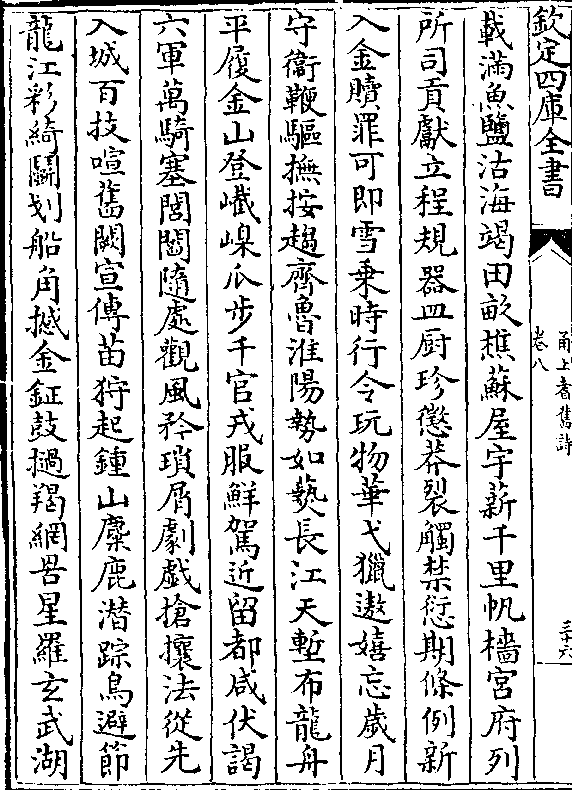 欽定四庫全書
甬上耆舊詩
卷八
三十六
載滿魚鹽沽海竭田畝樵蘇屋宇薪千里帆檣宮府列
所司貢獻立程規器皿厨珍懲莽裂觸禁愆期條例新
入金贖罪可即雪乗時行令玩物華弋獵遨嬉忘歲月
守衞鞭驅撫按趨齊魯淮陽勢如爇長江天塹布龍舟
平履金山登嶻嵲瓜步千官戎服鮮駕近留都咸伏謁
六軍萬騎塞閭閻隨處觀風矜瑣屑劇戯搶攘法從先
入城百技喧舊闕宣傳苗狩起鍾山麋鹿潜踪鳥避節
龍江彩綺鬭划船角撼金鉦鼓撾羯網罟星羅玄武湖